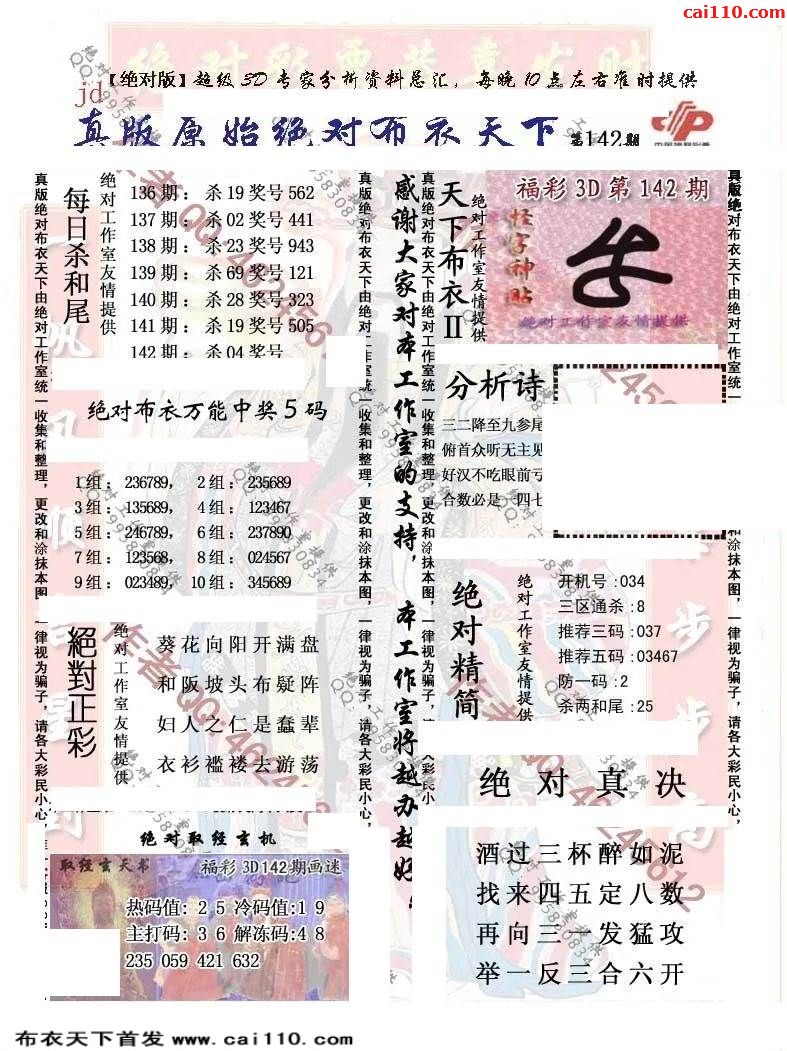 cai110.com
【绝对版】超级3D专家分析资料总汇，每晚10点左右准时提供
jd
真版原始绝对布衣天下
第142期
真版绝对布衣天下由绝对工作室统一收集和整理，更改和涂抹本图，一律视为骗子，请各大彩民小心，
每日杀和尾
绝对工作室友情提供
136期：杀19奖号562
137期：杀02奖号441
138期：杀23奖号943
139期：杀69奖号121
140期：杀28奖号323
141期：杀19奖号505
142期：杀04奖号
绝对布衣万能中奖5码
1组：236789，2组：235689
3组：135689，4组：123467
5组：246789，6组：237890
7组：123568，8组：024567
9组：023489，10组：345689
絕對正彩
绝对工作室友情提供
葵花向阳开满盘
和阪坡头布疑阵
妇人之仁是蠢辈
衣衫褴褛去游荡
绝对取经玄机
取经玄天书
福彩3D142期画迷
热码值：25冷码值:19
主打码：36解冻码:48
235 059 421 632
感谢大家对本工作室的支持，本工作室将越办越好
真版绝对布衣天下由绝对工作室统一收集和整理，更改和涂抹本图，一律视为骗子，
天下布衣II
绝对工作室友情提供
福彩3D第142期
怪字神贴
绝对工作室友情提供
分析诗
三二降至九参尾
俯首众听无主见
好汉不吃眼前亏
合数必是一四七
绝对精简
绝对工作室友情提供
开机号:034
三区通杀:8
推荐三码:037
推荐五码:03467
防一码:2
杀两和尾:25
绝对真决
酒过三杯醉如泥
找来四五定八数
再向三一发猛攻
举一反三合六开
真版绝对布衣天下由绝对工作室统一
和涂抹本图，一律视为骗子，请各大彩民小心，
布衣天下首发 www.cai110.com